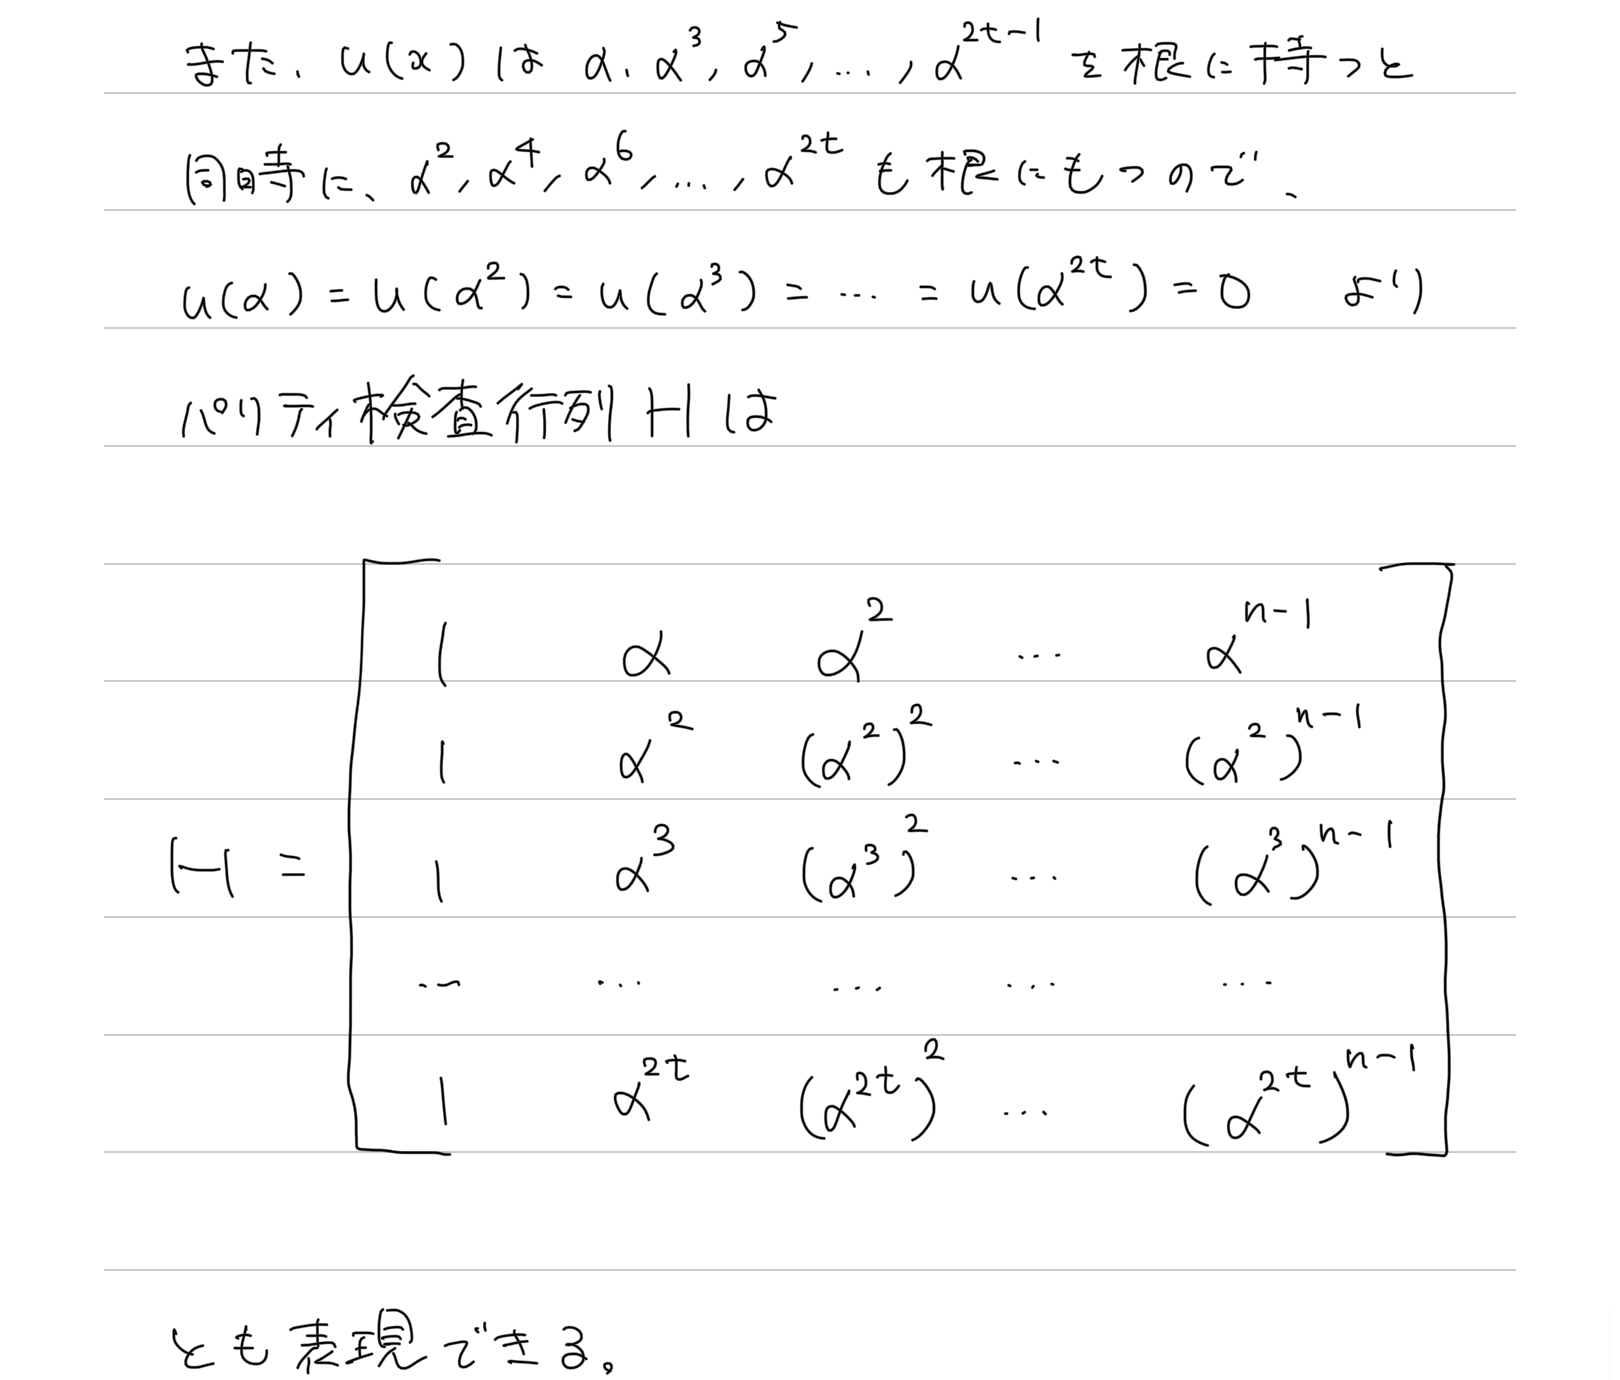 また、u(x)は α、α³, α⁵, ..., α²ᵗ⁻¹ を根に持つと
同時に、α², α⁴, α⁶, ..., α²ᵗ も根にもつので、
u(α) = u(α²) = u(α³) = ... = u(α²ᵗ) = 0 より
パリティ検査行列 H は
1 α α² ... αⁿ⁻¹
1 α² (α²)² ... (α²)ⁿ⁻¹
H = 1 α³ (α³)² ... (α³)ⁿ⁻¹
... ... ... ... ...
1 α²ᵗ (α²ᵗ)² ... (α²ᵗ)ⁿ⁻¹
とも表現できる。